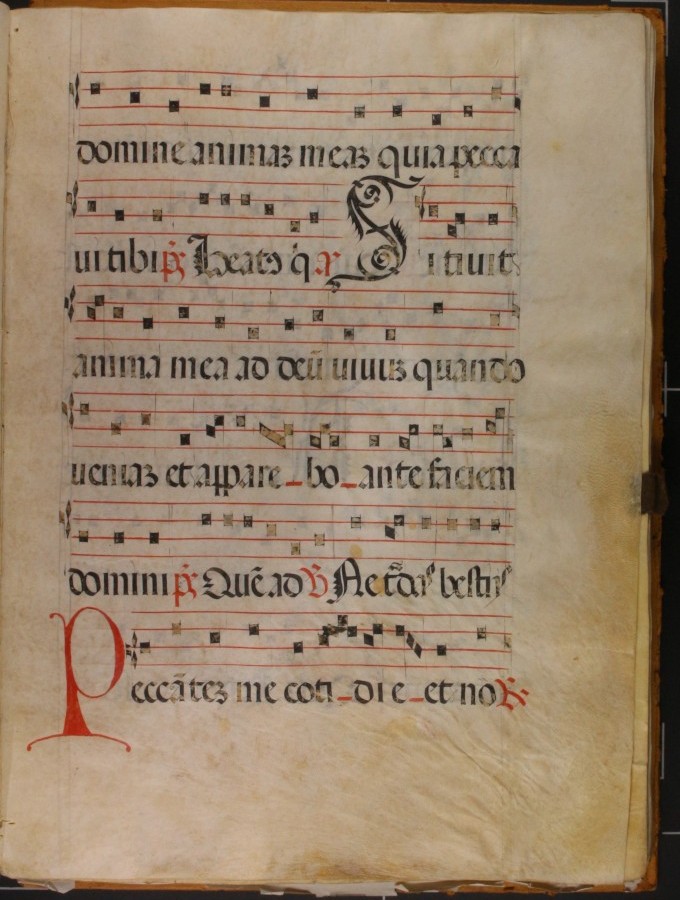 domine animaz meaz quia pecca
ui tibi p̄s Beatꝰ q̄ a Sitiuit
anima mea ad deū uiuuz quando
ueniaz et appare bo ante faciem
domini p̄s Quē ad V Ne t̄das bestiis
Peccātez me coti die et nō R